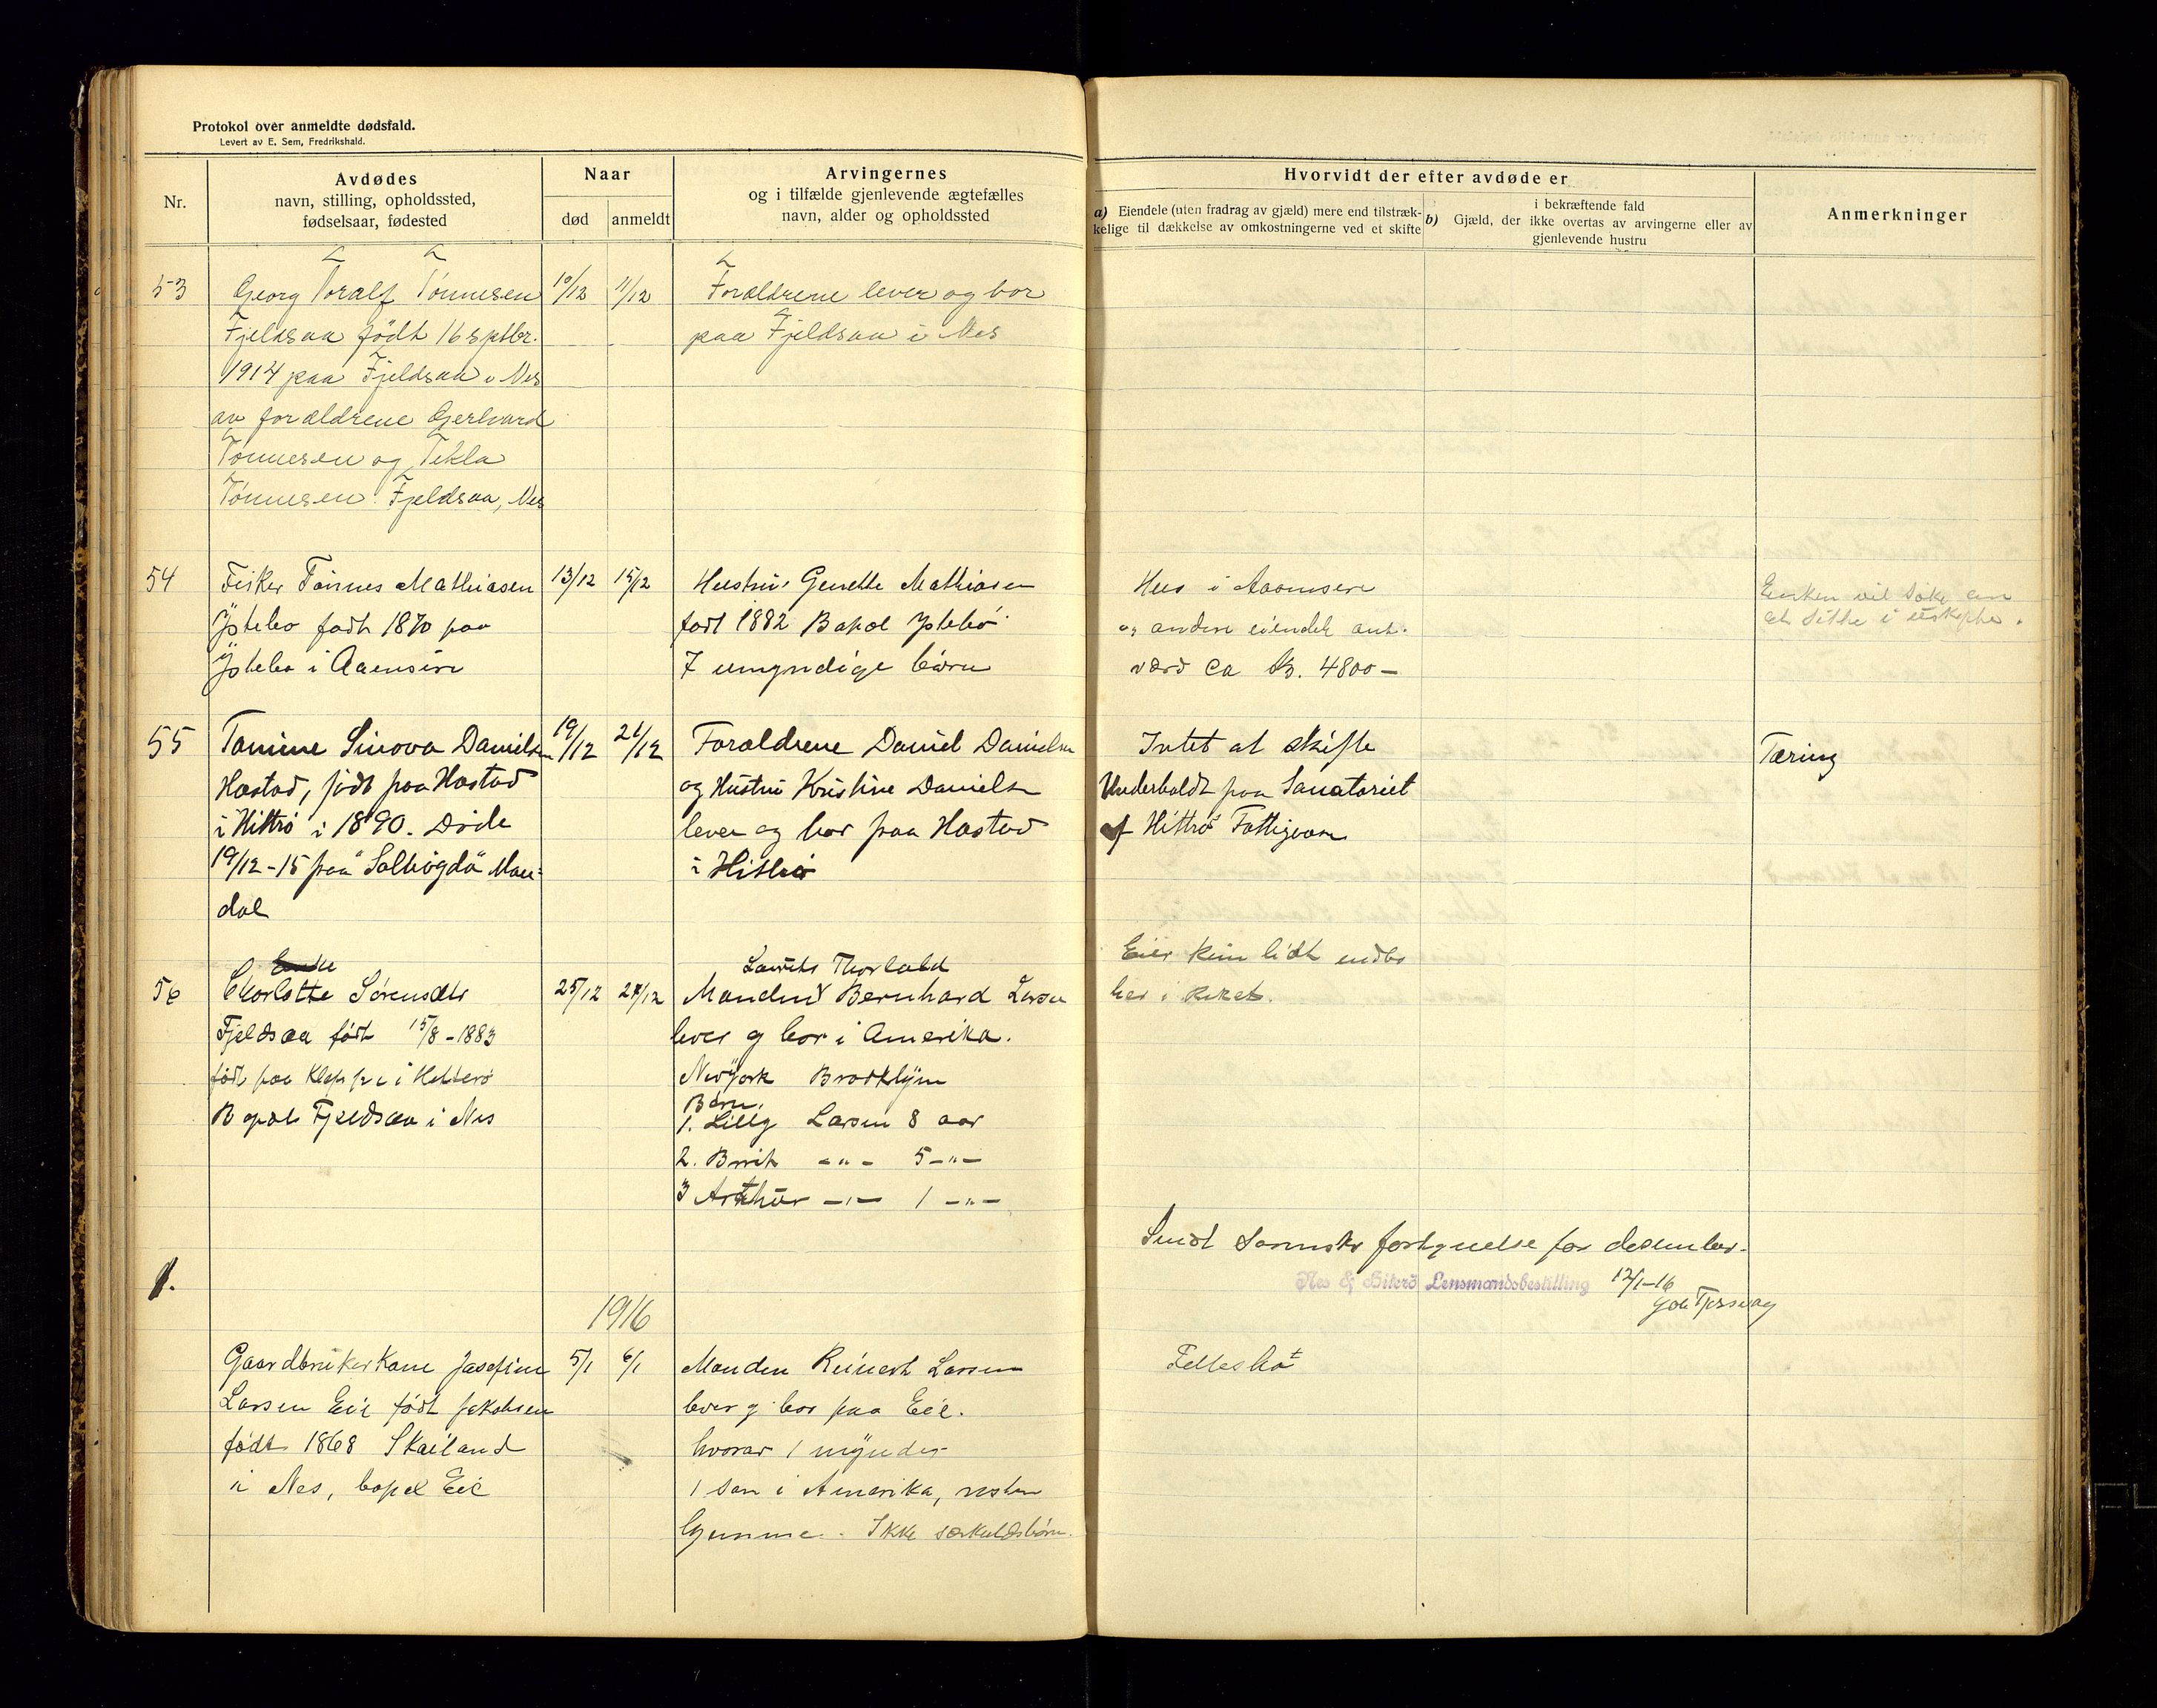 Protokol over anmeldte dødsfald.
Levert av E. Sem, Fredrikshald.
Nr.
Avdødes
navn, stilling, opholdssted,
fødselsaar, fødested
Naar
død
anmeldt
Arvingernes
og i tilfælde gjenlevende ægtefælles
navn, alder og opholdssted
Hvorvidt der efter avdøde er
a) Eiendele (uten fradrag av gjæld) mere end tilstræk-
kelige til dækkelse av omkostningerne ved et skifte
i bekræftende fald
b) Gjæld, der ikke overtas av arvingerne eller av
gjenlevende hustru
Anmerkninger
53
Georg Toralf Tønnesen
Fjeldsaa født 16 sptbr.
1914 paa Fjeldsaa i Nes
av forældrene Gerhard
Tønnesen og Tekla
Tønnesen Fjeldsaa, Nes
10/12
11/12
Forældrene lever og bor
paa Fjeldsaa i Nes
54
Fisker Tønnes Mathiasen
Ystebø født 1870 paa
Ystebø i Aaensire
13/12
15/12
Hustru Genette Mathiasen
født 1882 Bopæl Ystebø
7 umyndige børn
Hus i Aaensire
og andre eiendele ant.
værd ca Kr. 4800 –
Enken vil søke om
at sitte i uskifte.
55
Tomine Sinova Danielsen
Hæstad, født paa Hæstad
i Hittrø i 1890. Døde
19/12 - 15 paa "Solhøgda" Man-
dal
19/12
21/12
Forældrene Daniel Danielsen
og Hustru Kristine Danielsen
lever og bor paa Hæstad
i Hitterø
Intet at skifte
Underholdt paa Sanatoriet
af Hittrø Fattigvæsen
Tæring
56
Enke
Charlotte Sørensdtr
Fjeldsaa født 15/8 - 1883
født paa Kleppe i Hitterø
Bopæl Fjeldsaa i Nes
25/12
27/12
Laurits Thorvald
Manden Bernhard Larsen
lever og bor i Amerika.
New York Brooklyn
Børn.
1. Lilly Larsen 8 aar
2. Berit - " - 5 - " -
3 Arthur - " - 1 - " -
Eier kun lidt indbo
her i riket.
Sendt Sorensk. fortegnelse for desember.
Nes & Hiterø Lensmandsbestilling 12/1-16
1.
1916
Gaardbrukerkone Josefine
Larsen Eie født Jakobsen
født 1868 Skailand
i Nes, bopæl Eie
5/1
6/1
Manden Reinert Larsen
lever og bor paa Eie.
hvorav 1 myndig
1 søn i Amerika, resten
hjemme. Ikke særkuldsbørn.
Fellesbo